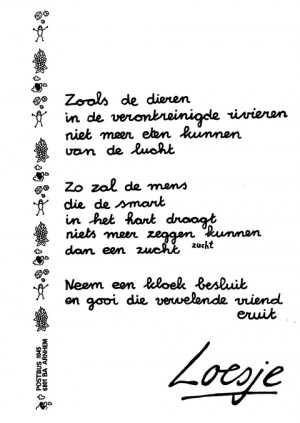 Zoals de dieren
in de verontreinigde rivieren
niet meer eten kunnen
van de lucht
Zo zal de mens
die de smart
in het hart draagt
niets meer zeggen kunnen
dan een zucht zucht
Neem een kloek besluit
en gooi die vervelende vriend
eruit
Loesje
POSTBUS 1045
6801 BA ARNHEM